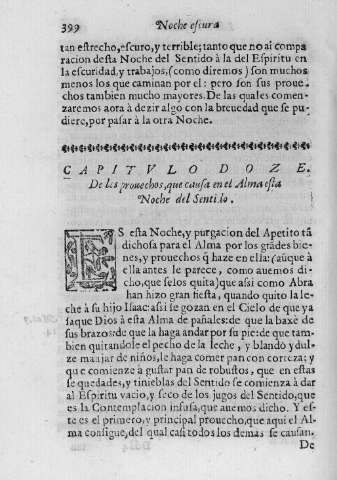 399 Noche escura
tan estrecho, escuro, y terrible; tanto que no ai compa
racion desta Noche del Sentido à la del Espiritu en
la escuridad, y trabajos, (como diremos) son muchos
menos los que caminan por el: pero son sus proue
chos tambien mucho mayores. De las quales comen-
zaremos aora à dezir algo con la breuedad que se pu-
diere, por pasar à la otra Noche.
CAPITVLO DOZE.
De los prouechos, que causa en el Alma esta
Noche del Sentilo.
ES esta Noche, y purgacion del Apetito tã
dichosa para el Alma por los grãdes bie-
nes, y prouechos q̃ haze en ella: (aũque à
ella antes le parece, como auemos di-
cho, que se los quita) que asi como Abra
han hizo gran fiesta, quando quito la le-
che à su hijo Isaac: asi se gozan en el Cielo de que ya
saque Dios à esta Alma de pañales: de que la baxe de
sus brazos: de que la haga andar por su pie: de que tam-
bien quitandole el pecho de la leche, y blando y dul-
ze manjar de niños, le haga comer pan con corteza; y
que comienze à gustar pan de robustos, que en estas
sequedades, y tinieblas del Sentido se comienza à dar
al Espiritu vacio, y seco de los jugos del Sentido, que
es la Contemplacion infusa, que auemos dicho. Y es-
te es el primero, y principal prouecho, que aqui el Al-
ma consigue, del qual casi todos los demas se causan.
De